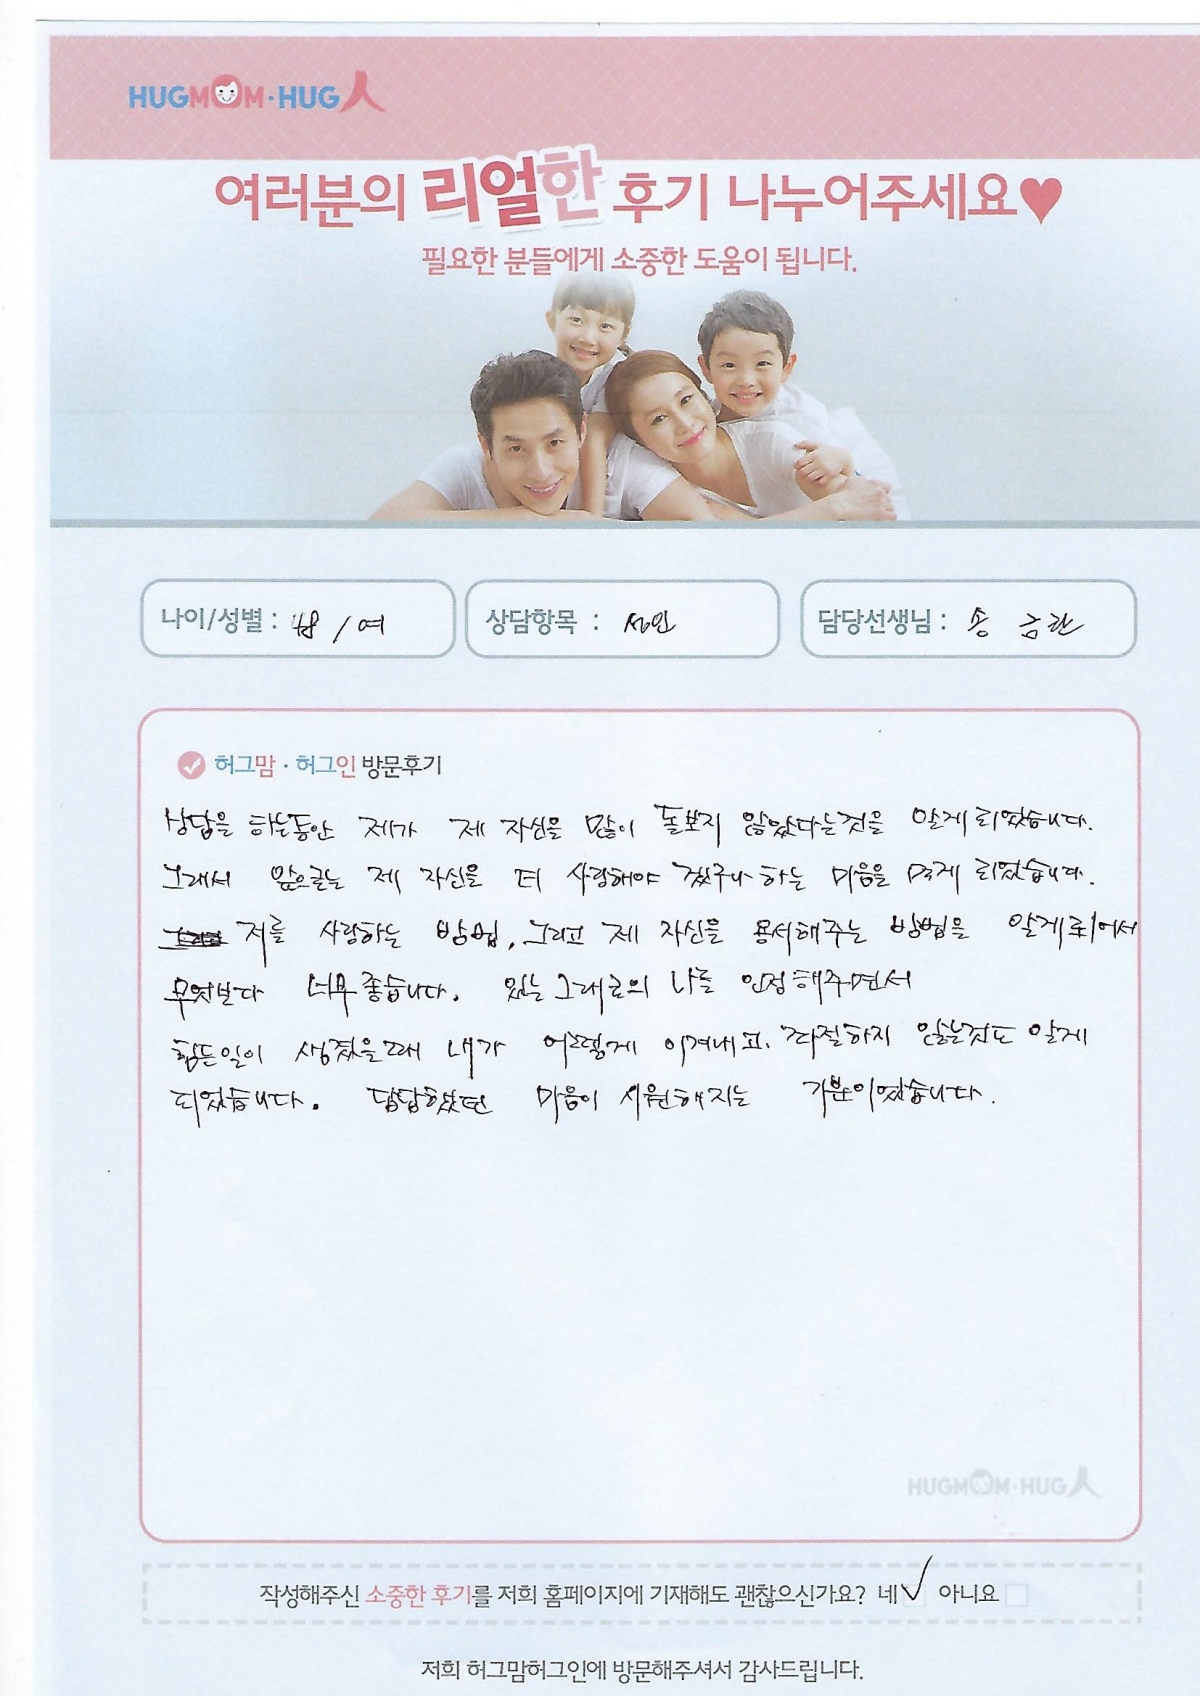 HUGMOM·HUG人
여러분의 리얼한 후기 나누어주세요♥
필요한 분들에게 소중한 도움이 됩니다.
나이/성별 : 48 / 여
상담항목 : 성인
담당선생님 : 송 금란
허그맘 · 허그인 방문후기
상담을 하는동안 제가 제 자신을 많이 돌보지 않았다는것을 알게 되었습니다.
그래서 앞으로는 제 자신을 더 사랑해야 겠구나 하는 마음을 먹게 되었습니다.
저를 사랑하는 방법, 그리고 제 자신을 용서해주는 방법을 알게되어서
무엇보다 너무 좋습니다. 있는 그대로의 나를 인정해주면서
힘든일이 생겼을때 내가 어떻게 이겨내고, 좌절하지 않는것도 알게
되었습니다. 답답했던 마음이 시원해지는 기분이였습니다.
HUGMOM·HUG人
작성해주신 소중한 후기를 저희 홈페이지에 기재해도 괜찮으신가요? 네 ✓ 아니요 □
저희 허그맘허그인에 방문해주셔서 감사드립니다.